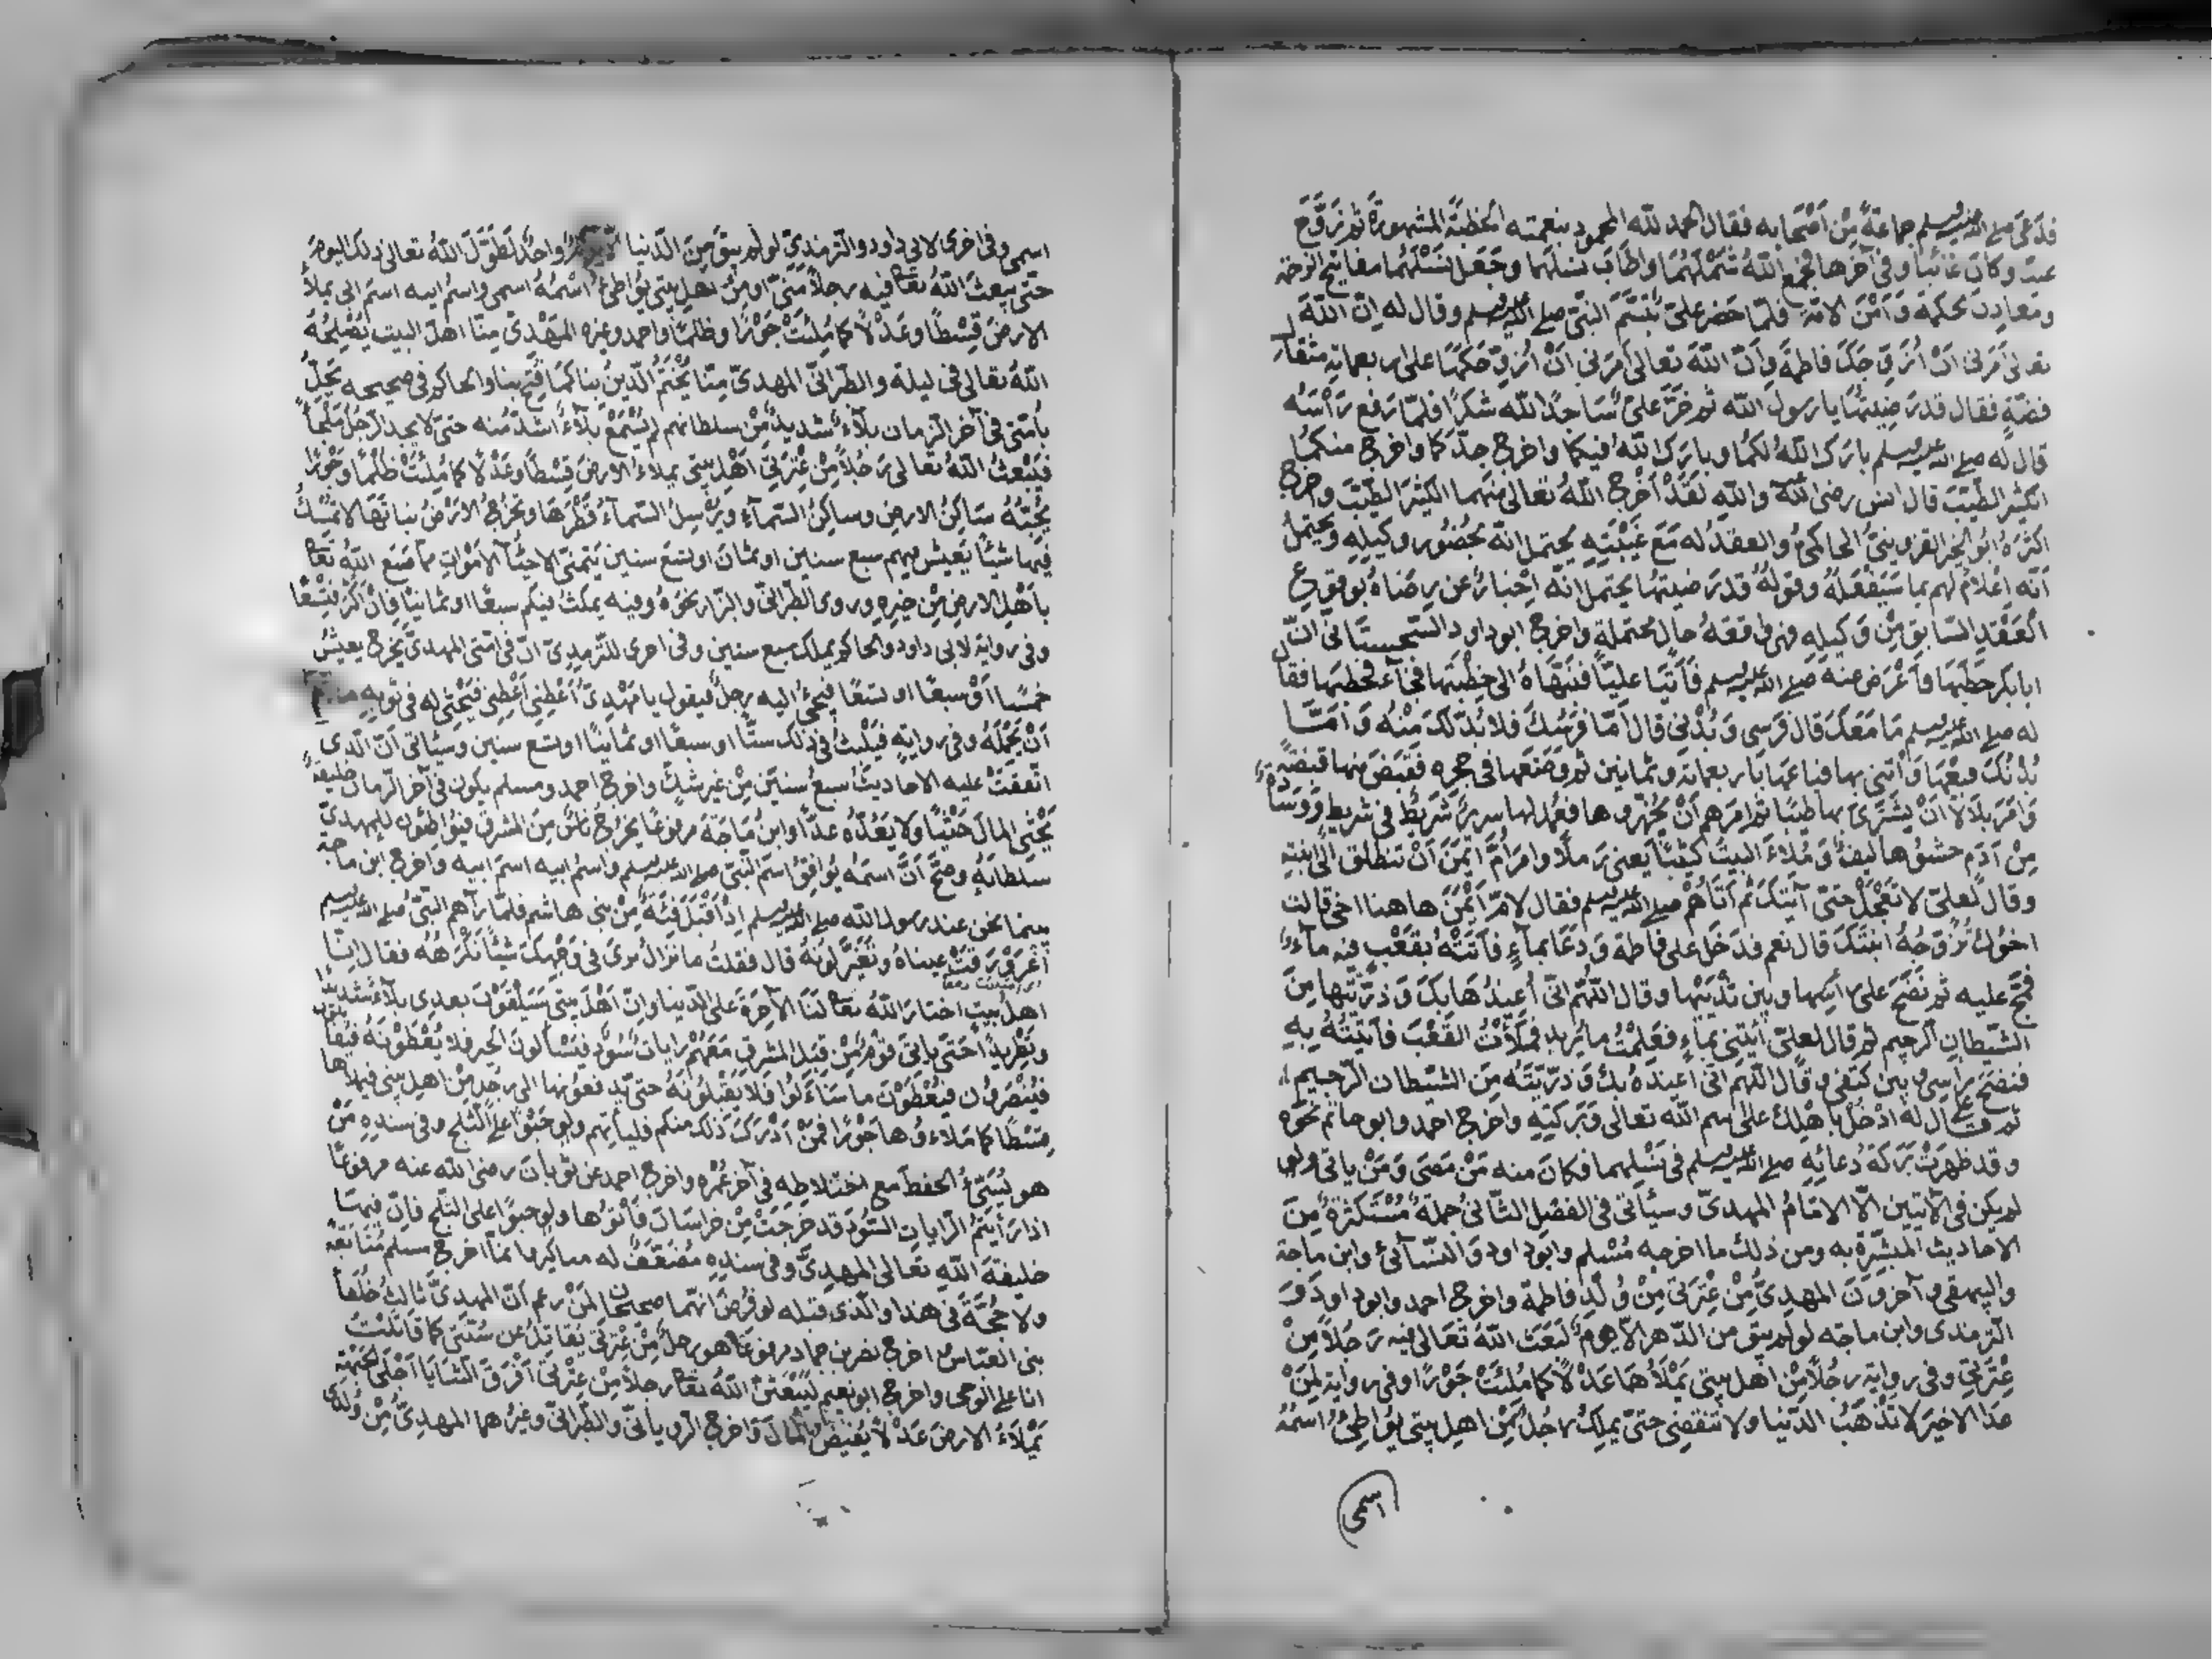 فدعى صلى الله عليه وسلم جماعة من اصحابه فقال الحمد لله المحمود بنعمته الخطبة المشهورة ثم زوج
عليا وكان غائبا وفى آخرها فجمع الله شملهما واطاب نسلهما وجعل نسلهما مفاتيح الرحمة
ومعادن الحكمة وامن الامة فلما حضر على تبسم النبى صلى الله عليه وسلم وقال له ان الله
تعالى امرنى ان ازوجك فاطمة وان الله تعالى امرنى ان ازوجكها على اربعمائة مثقال
فضة فقال قد رضيتها يا رسول الله ثم خر على ساجدا لله شكرا فلما رفع رأسه
قال له صلى الله عليه وسلم بارك الله لكما وبارك الله فيكما واخرج جدكما واخرج منكما
الكثير الطيب قال انس رضى الله والله لقد اخرج الله تعالى منهما الكثير الطيب واخرج
اكثره ابو الخير القزوينى الحاكمى والعقد له مع غيبته يحتمل انه بحضور وكيله ويحتمل
انه اعلام لهم بما سيفعله وقوله قد رضيتها يحتمل انه اخبار عن رضاه بوقوع
العقد السابق من وكيله فهى واقعة حال محتملة واخرج ابو داود السجستانى ان
ابا بكر خطبها فاعرض عنه صلى الله عليه وسلم فأتيا عليا فنبهاه الى خطبتها فجآء فخطبها فقال
له صلى الله عليه وسلم ما معك قال فرسى وبدنى قال اما فرسك فلا بد لك منه واما
بدنك فبعها وأتنى بها فباعها باربعمائة وثمانين ثم وضعها فى حجره فقبض منها قبضة
وامر بلالا ان يشترى بها طيبا ثم امرهم ان يجهزوها فعمل لها سرير شريط فى شريط ووسادة
من أدم حشوها ليف وملاء البيت كثيبا يعنى رملا وامر ام ايمن ان تنطلق الى ابنته
وقال لعلى لا تعجل حتى آتيك ثم اتاهم صلى الله عليه وسلم فقال لام ايمن هاهنا اخى قالت
اخوك تزوجه ابنتك قال نعم فدخل على فاطمة ودعا بمآء فأتته بقعب فيه مآء
فمج عليه ثم نضح على رأسها وبين ثدييها وقال اللهم انى اعيذها بك وذريتها من
الشيطان الرجيم ثم قال لعلى أيتنى بماء فعلمت ما يريد فملأت القعب فأتيته به
فنضح رأسى وبين كتفى وقال اللهم انى اعيذه بك وذريته من الشيطان الرجيم
ثم قال له ادخل باهلك على اسم الله تعالى وبركته واخرج احمد وابو حاتم نحوه
وقد ظهرت بركة دعائه صلى الله عليه وسلم فى نسلهما فكان منه من مضى ومن يأتى ولو
لم يكن فى الآتيين الا الامام المهدى وسيأتى فى الفصل الثانى جملة مستكثرة من
الاحاديث المبشرة به ومن ذلك ما اخرجه مسلم وابو داود والنسآئى وابن ماجة
والبيهقى وآخرون المهدى من عترتى من ولد فاطمة واخرج احمد وابو داود و
الترمذى وابن ماجه لو لم يبق من الدهر الا يوم لبعث الله تعالى فيه رجلا من
عترتى وفى رواية رجلا من اهل بيتى يملأها عدلا كما ملئت جورا وفى رواية لمن
عدا الاخير لا تذهب الدنيا ولا تنقضى حتى يملك رجل من اهل بيتى يواطئ اسمه
اسمى
اسمى وفى اخرى لابى داود والترمذى لو لم يبق من الدنيا الا يوم واحد لطول الله تعالى ذلك اليوم
حتى يبعث الله تعا فيه رجلا منى او من اهل بيتى يواطئ اسمه اسمى واسم ابيه اسم ابى يملأ
الارض قسطا وعدلا كما ملئت جورا وظلما واحمد وغيره المهدى منا اهل البيت يصلحه
الله تعالى فى ليلة والطبرانى المهدى منا يختم الدين بنا كما فتح بنا والحاكم فى صحيحه يحل
بأمتى فى آخر الزمان بلآء شديد من سلطانهم لم يسمع بلآء اشد منه حتى لا يجد الرجل ملجأ
فيبعث الله تعالى رجلا من عترتى اهل بيتى يملاء الارض قسطا وعدلا كما ملئت ظلما وجورا
يحبه ساكن الارض وساكن السمآء ويرسل السمآء قطرها وتخرج الارض نباتها لا تمسك
فيها شيئا يعيش فيهم سبع سنين او ثمان او تسع سنين يتمنى الاحيآ الاموات مما صنع الله تعا
باهل الارض من خيره وروى الطبرانى والبزار نحوه وفيه يمكث فيكم سبعا او ثمانيا فان اكثر فتسعا
وفى رواية لابى داود والحاكم يملك سبع سنين وفى اخرى للترمذى ان فى امتى المهدى يخرج يعيش
خمسا او سبعا او تسعا فيجئ اليه رجل فيقول يا مهدى اعطنى اعطنى فيحثى له فى ثوبه
ان يحمله وفى رواية فيلبث فى ذلك ستا او سبعا او ثمانيا او تسع سنين وسيأتى ان الذى
اتفقت عليه الاحاديث سبع سنين من غير شك واخرج احمد ومسلم يكون فى آخر الزمان خليفة
يحثى المال حثيا ولا يعده عدا وابن ماجة مرفوعا يخرج ناس من المشرق فيوطئون للمهدى
سلطانه وصح ان اسمه يوافق اسم النبى صلى الله عليه وسلم واسم ابيه اسم ابيه واخرج ابن ماجة
بينما نحن عند رسول الله صلى الله عليه وسلم اذ اقبل فئة من بنى هاشم فلما رآهم النبى صلى الله عليه وسلم
اغرورقت عيناه وتغير لونه قال فقلت ما نزال نرى فى وجهك شيئا نكرهه فقال انا
اهل بيت اختار الله تعا لنا الآخرة على الدنيا وان اهل بيتى سيلقون بعدى بلآء شديدا
وتطريدا حتى يأتى قوم من قبل المشرق معهم رايات سود فيسألون الخير فلا يعطونه فيقاتلون
فينصرون فيعطون ما ساءلوا فلا يقبلونه حتى يدفعونها الى رجل من اهل بيتى فيملاها
قسطا كما ملاءوها جورا فمن ادرك ذلك منكم فليأتهم ولو حبوا على الثلج وفى سنده من
هو سيئ الحفظ مع اختلاطه فى آخر عمره واخرج احمد عن ثوبان رضى الله عنه مرفوعا
اذا رأيتم الرايات السود قد خرجت من خراسان فأتوها ولو حبوا على الثلج فان فيها
خليفة الله تعالى المهدى وفى سنده مضعف له مناكير انما اخرج مسلم متابعة
ولا حجة فى هذا والذى قبله لو فرض انهما صحيحان لمن زعم ان المهدى ثالث خلفآ
بنى العباس واخرج نصر بن حماد مرفوعا هو رجل من عترتى يقاتل عن سنتى كما قاتلت
انا على الوحى واخرج ابو نعيم ليبعثن الله تعا رجلا من عترتى افرق الثنايا اجلى الجبهة
يملاء الارض عدلا يفيض المال واخرج الرويانى والطبرانى وغيرهما المهدى من ولدى